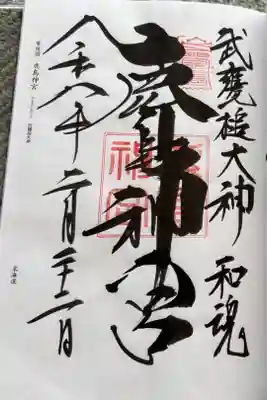 武甕槌大神 和魂
鹿島神宮
令和八年二月二十二日
鹿島神宮
東海道